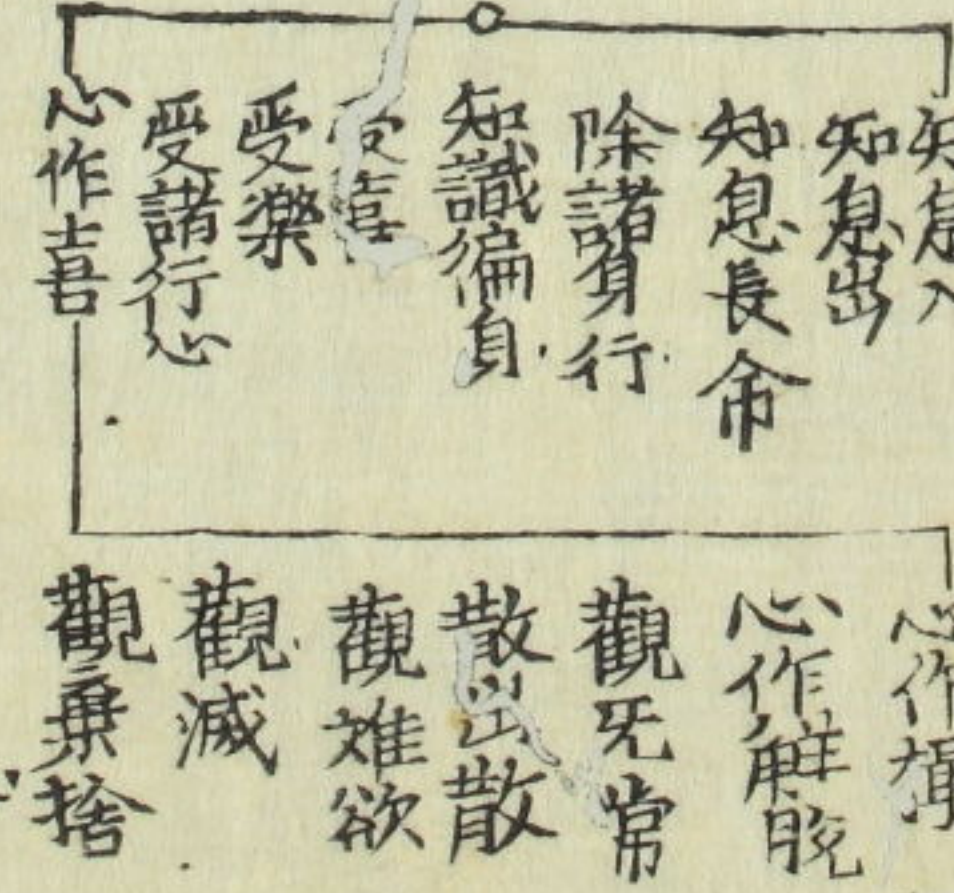 知息入
知息出
知息長命
除諸身行
知識徧身
受喜
受樂
受諸行心
心作喜
心作攝
心作解脫
觀无常
散出散
觀離欲
觀滅
觀棄捨